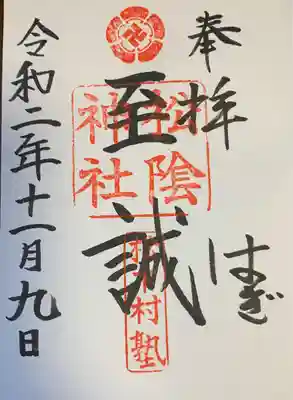 奉拝
はぎ
至誠
松陰神社
松下村塾
令和二年十一月九日